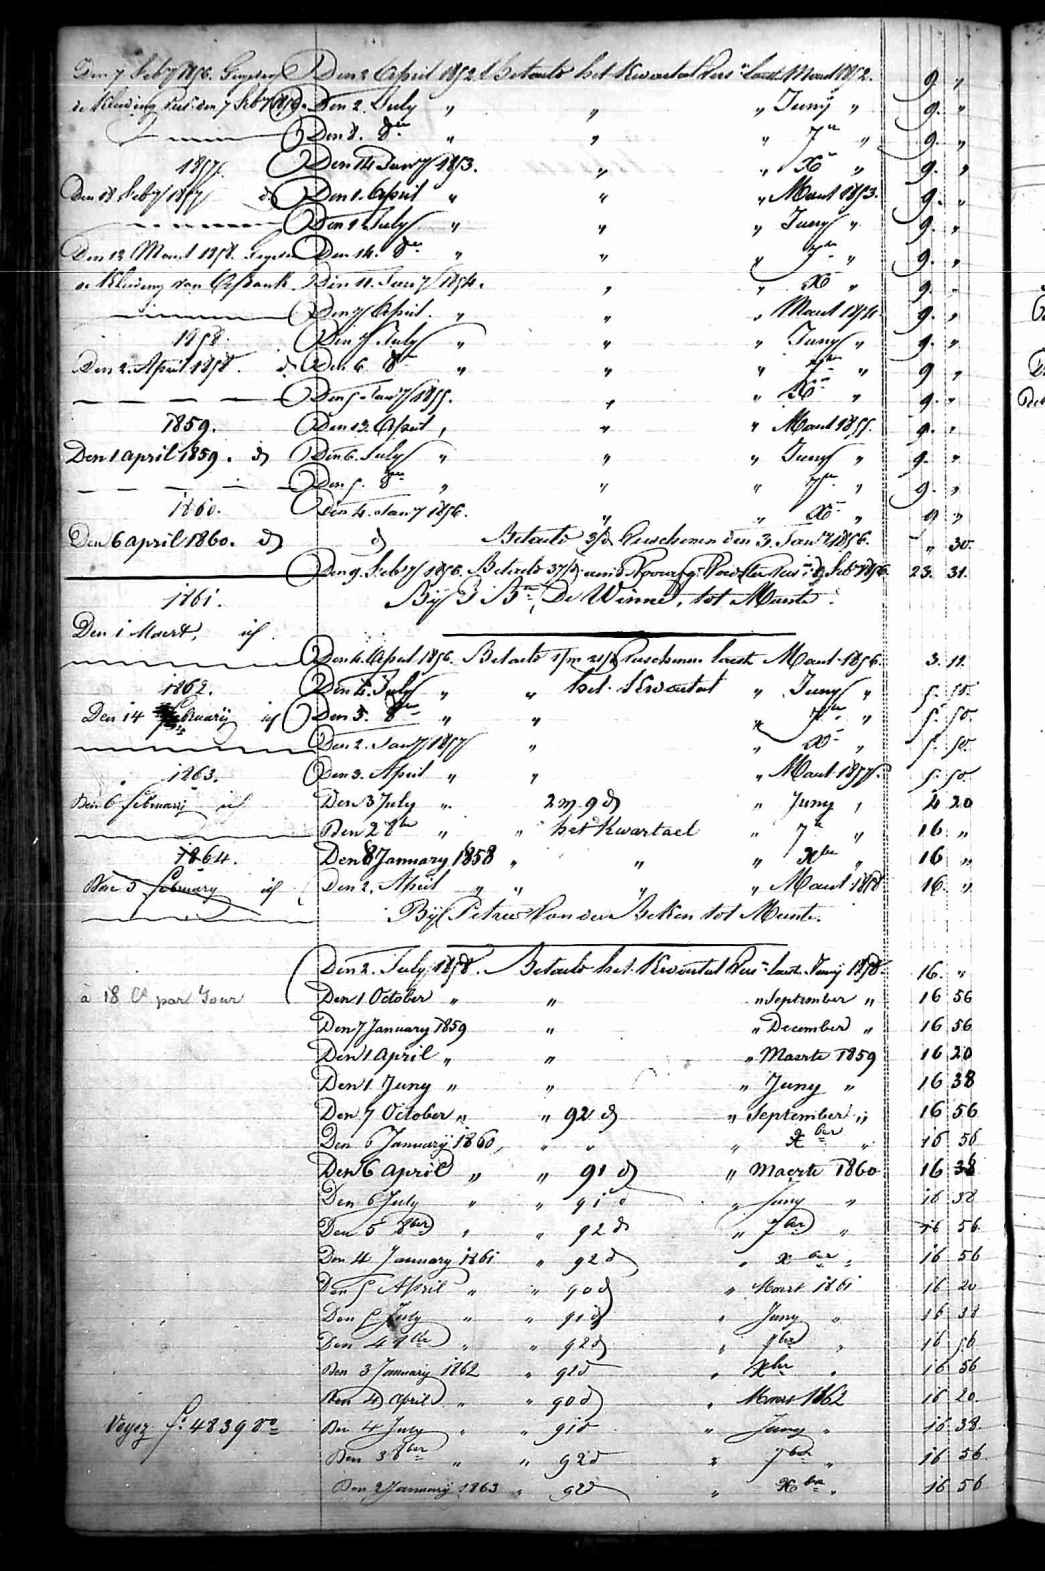 Den 7 Feb^y 1856. Den 2 April 1852 Betaelt het Kwartael laest Maert 1852. 9. "
de Kleeding den 7 Feb^y 1856 Den 2. July " " " Juny " 9. "
Den 8. 8^er " " " 7^er " 9. "
1857. Den 14 Jan^y 1853. " " X^er " 9. "
Den 18 Feb^y 1857 d^o Den 1. April " " " Maert 1853. 9. "
Den 12 July " " " Juny " 9. "
Den 12 Maert 1858. Den 14. 8^er " " " 7^er " 9. "
de Kleeding van Den 11. Jan^y 1854. " " X^er " 9. "
Den 7 April. " " " Maert 1854 9. "
1858. Den 7 July " " " Juny " 9. "
Den 2. April 1858. d^o Den 6. 8^er " " " 7^er " 9. "
Den 5 Jan^y 1855. " " X^er " 9. "
1859. Den 13. April " " " Maert 1855. 9. "
Den 1 April 1859. d^o Den 6. July " " " Juny " 9. "
Den 5. 8^er " " " 7^er " 9. "
1860. Den 4. Jan^y 1856. " " X^er " 9 "
Den 6 April 1860. d^o d^o Betaelt 3/d Verschenen den 3. Jan^y 1856. " 30.
Den 9. Feb^y 1856. Betaelt 37/d Feb^y 1856 23. 31.
1861. Bij De Winne, tot Munte.
Den 1 Maert, id
Den 4. April 1856. Betaelt 1/m 21/d Verschenen laest Maert 1856. 3. 11.
1862. Den 4. July " " het Kwartael " Juny " 5. 50.
Den 14 february id Den 3. 8^er " " " 7^er " 5. 50.
Den 2. Jan^y 1857 " " X^er " 5. 50.
1863. Den 3. April " " " Maert 1857. 5. 50
Den 6 february id Den 3 July " 2 m. 9 d " Juny " 4 20
Den 2 8^er " " het Kwartael " 7^er " 16. "
1864. Den 8 January 1858 " " " X^ber " 16 "
Den 5 february id Den 2. April " " " " Maert 1858 16. "
Bij Petrus Van der Beken tot Munte.
Den 2. July 1858. Betaelt het Kwartael laest Juny 1858. 16. "
à 18 C^s par Jour Den 1 October " " " September " 16 56
Den 7 January 1859 " " December " 16 56
Den 1 April " " " Maerte 1859 16 20
Den 1 Juny " " " Juny " 16 38
Den 7 October " " 92 d " September " 16 56
Den 6 January 1860, " " " X^ber " 16 56
Den 6 April " " 91 d " Maerte 1860 16 38
Den 6 July " " 91 d " Juny " 16 38
Den 5 8^ber " " 92 d " 7^ber " 16 56.
Den 4 January 1861 " 92 d " X^ber " 16 56
Den 5 April " " 90 d " Maert 1861 16 20
Den 5 July " " 91 d " Juny " 16 38
Den 4 8^ber " " 92 d " 7^ber " 16 56
Den 3 January 1862 " 92 d " X^ber " 16 56
Den 4 April " " 90 d " Maert 1862 16 20.
Voyez f^o 4839 V^o Den 4 July " " 91 d " Juny " 16 38.
Den 3 8^ber " " 92 d " 7^ber " 16 56.
Den 2 January 1863 " 92 d " X^ber " 16 56